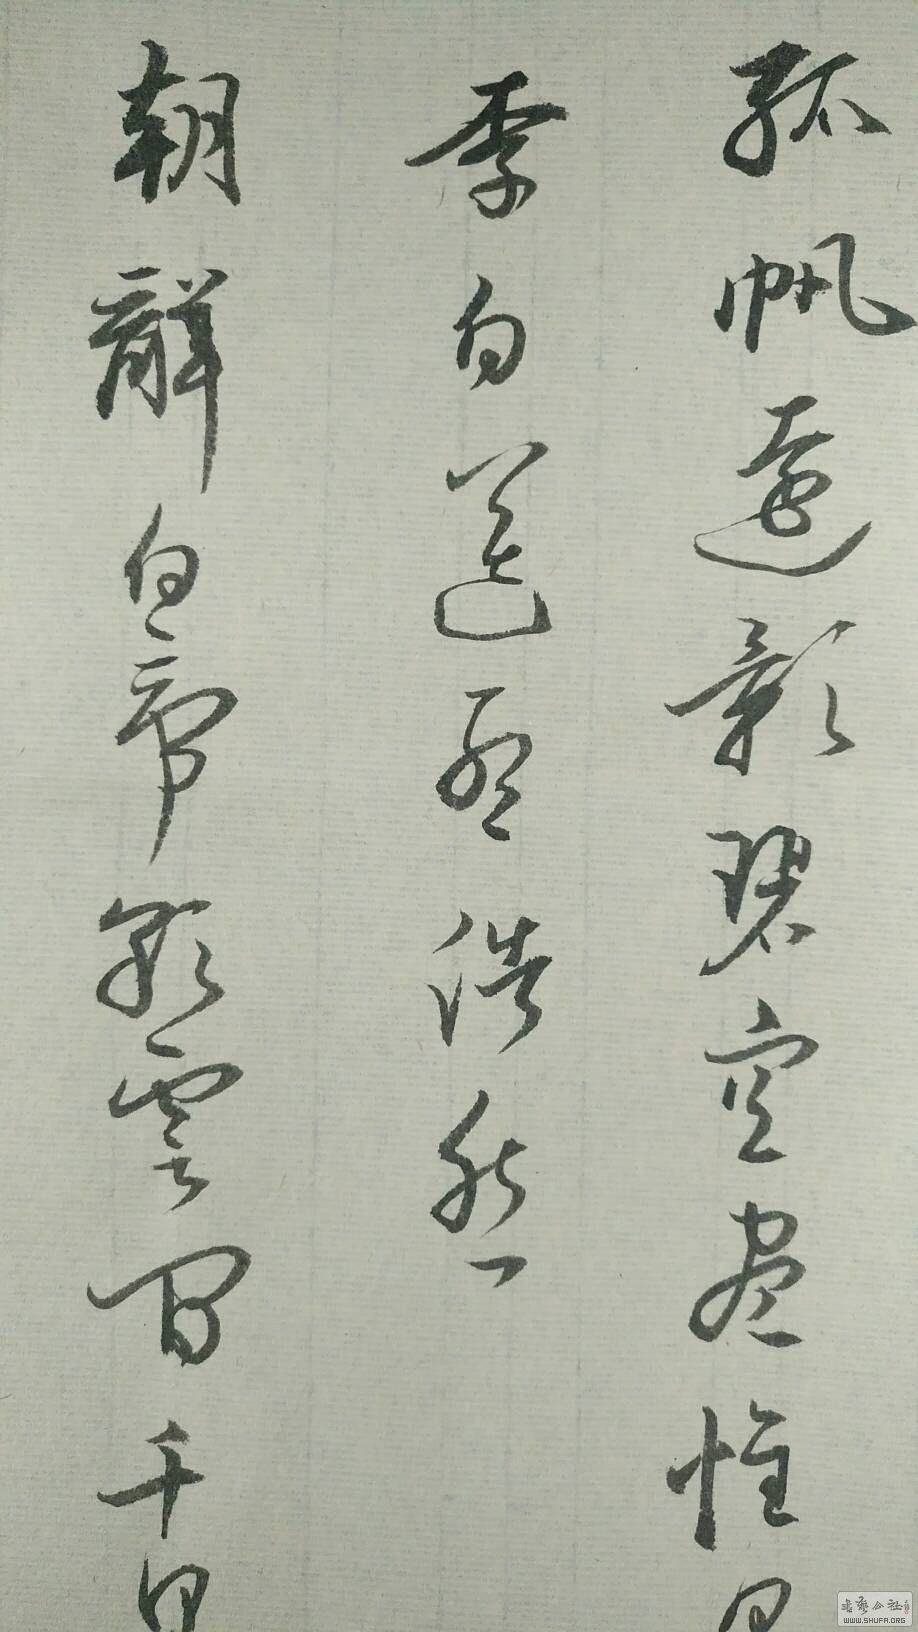 孤帆遠影碧空盡惟
李白送孟浩然
朝辭白帝彩雲間千
书艺公社
WWW.SHUFA.ORG